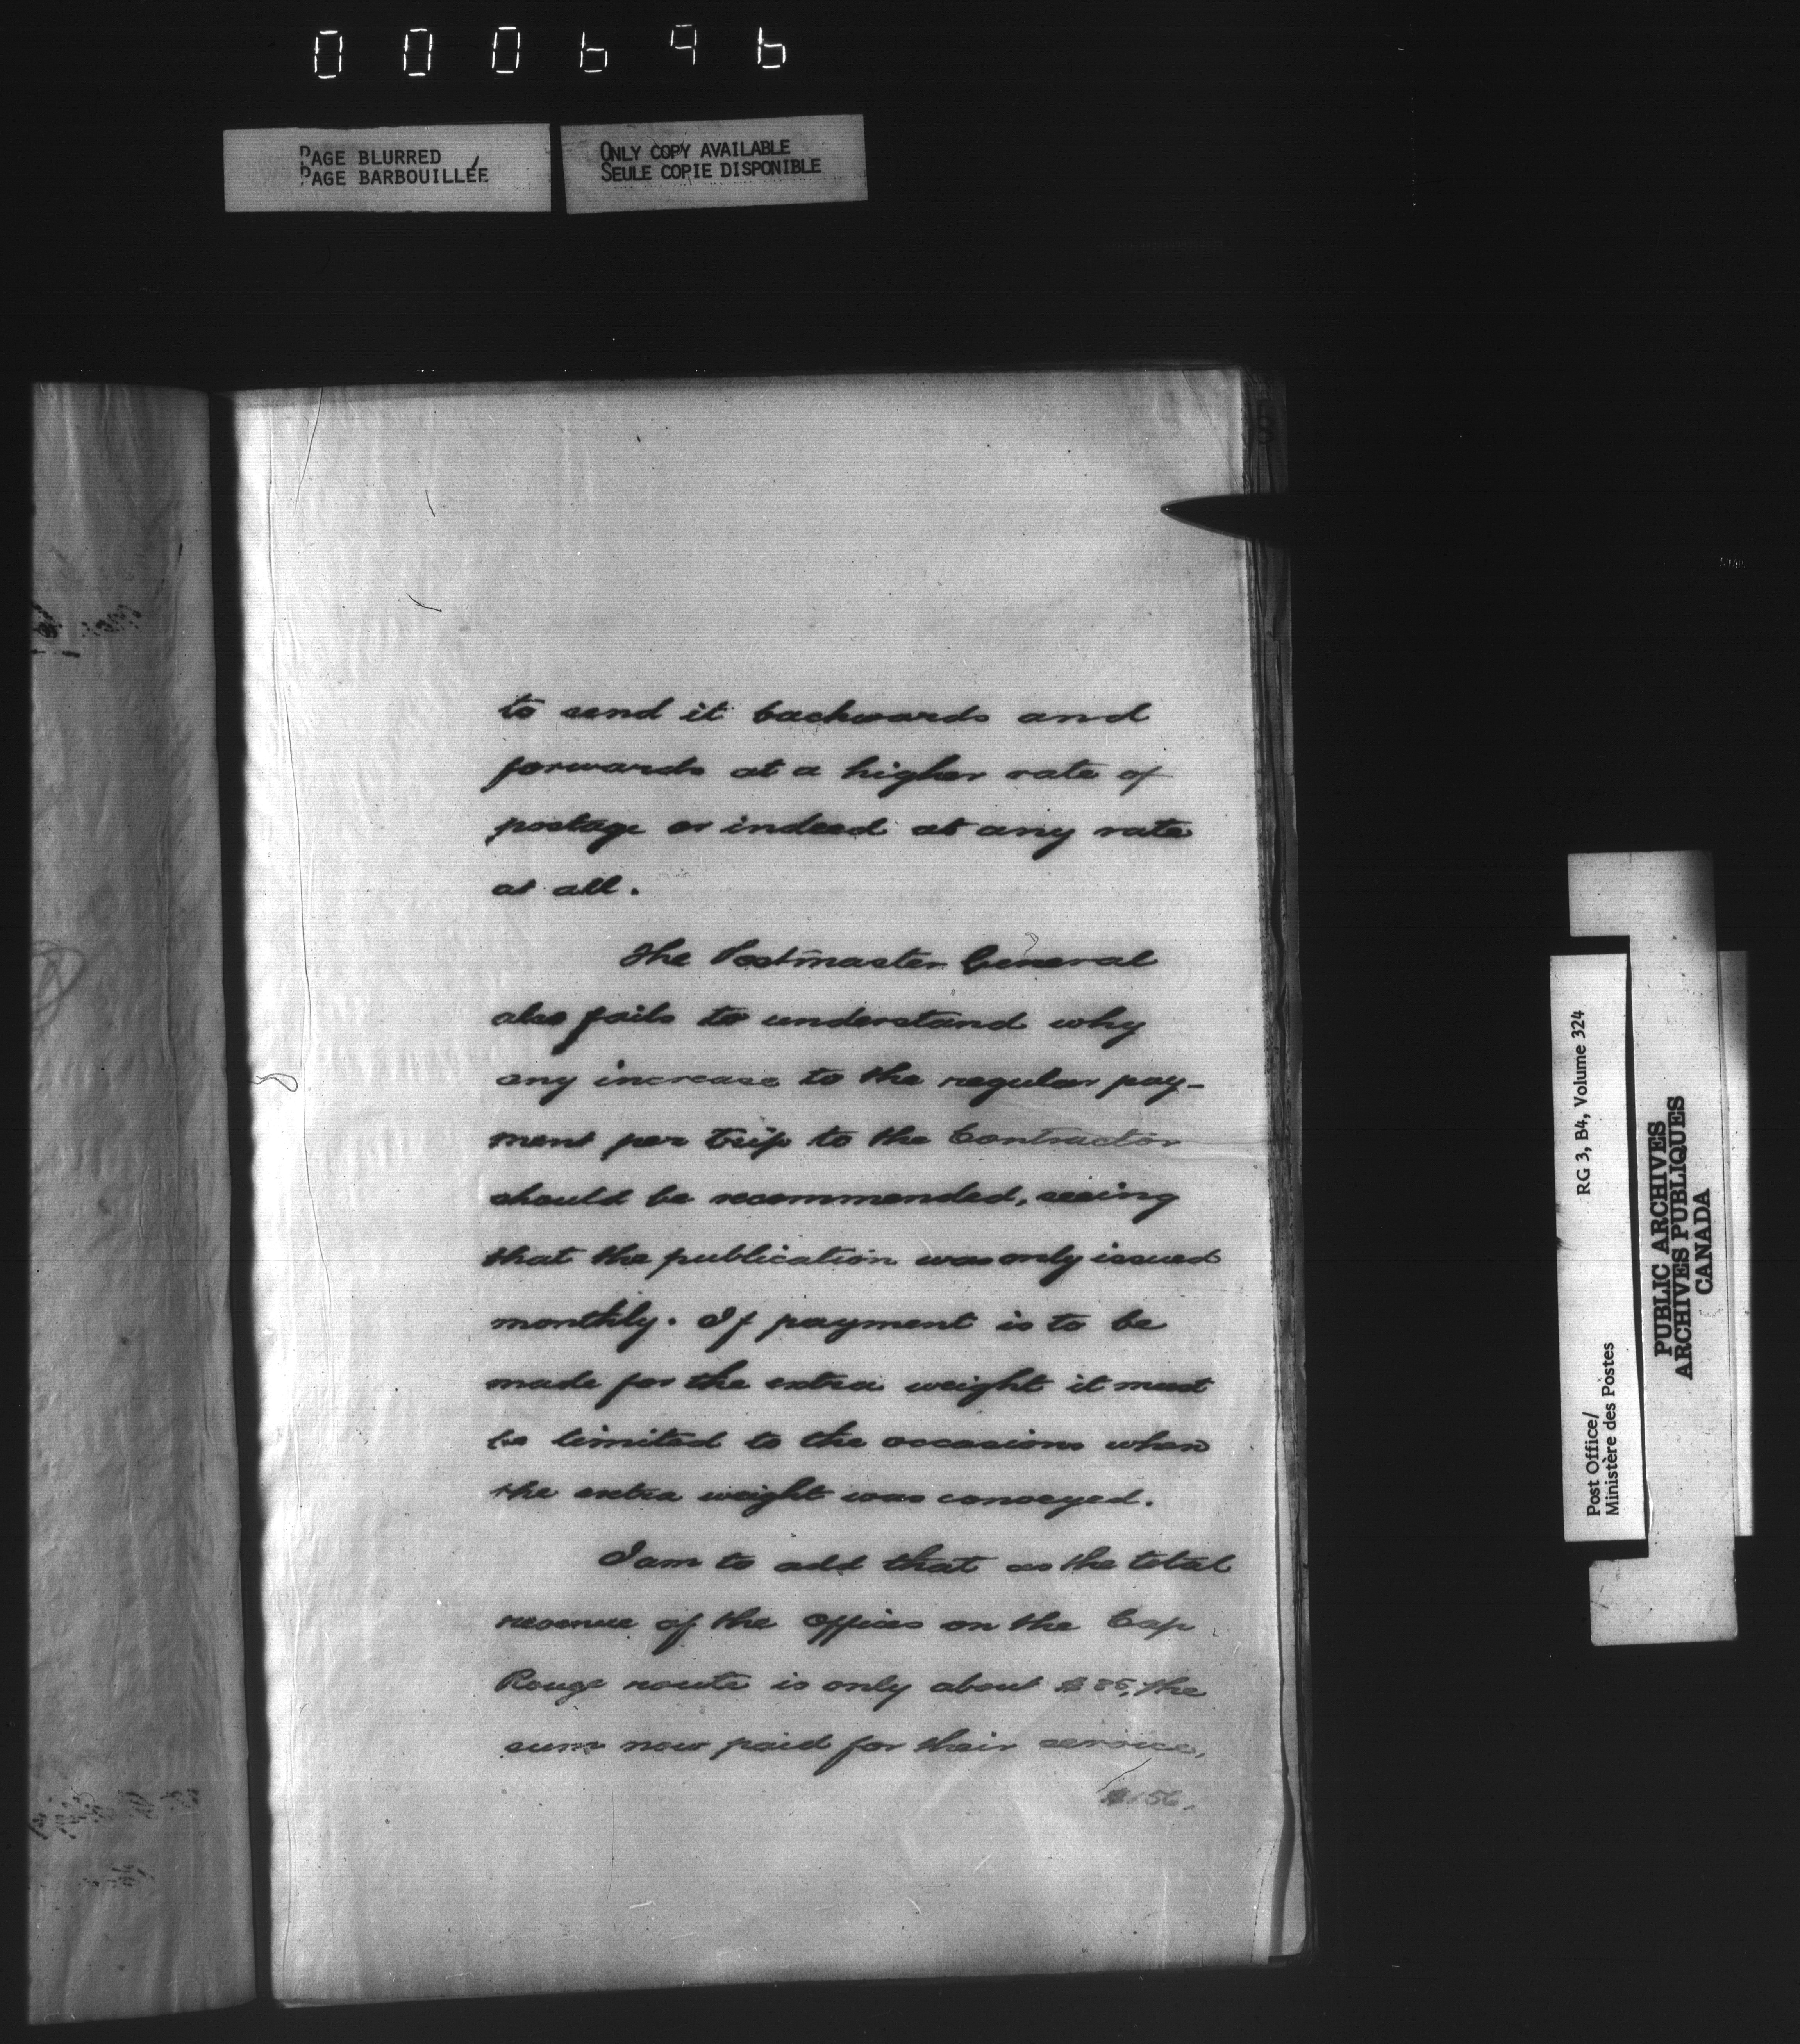 000696
PAGE BLURRED
PAGE BARBOUILLÉE
ONLY COPY AVAILABLE
SEULE COPIE DISPONIBLE
to send it backwards and
forwards at a higher rate of
postage or indeed at any rate
at all.
The Postmaster General
also fails to understand why
any increase to the regular pay-
ment per trip to the Contractor
should be recommended, seeing
that the publication was only issued
monthly. If payment is to be
made for the extra weight it must
be limited to the occasions when
the extra weight was conveyed.
I am to add that as the total
revenue of the Offices on the Cap
Rouge route is only about the
sum now paid for their service,
$156,
Post Office/
Ministère des Postes
RG 3, B4, Volume 324
PUBLIC ARCHIVES
ARCHIVES PUBLIQUES
CANADA